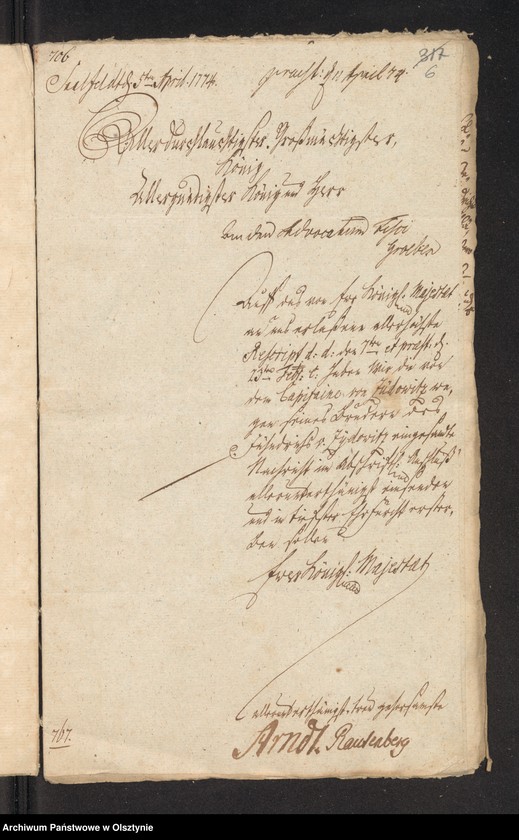 706
Saalfeldt d. 5ten April. 1774.
praes: d 11 April 74.
317
6
Allerdurchlauchtigster, Großmächtigster,
König
Allergnädigster König und Herr
An den Advocatum Fisci
Groeben
Auff das von Ew Königl: Majestät
an uns erlaßene allerhöchste
Rescript d: d: den 7ten et praes: d.
25ten haben wir die von
dem Capitaine von
wegen seines Bruders des
Fähndrichs v. eingesandte
Nachricht im Abschriftl: Anschluß
allerunterthänigst einsenden
und in tiefster Ehrfurcht erster,
ben sollen
Ewer Königl: Majestät
allerunterthänigst treu gehorsamste
Arndt. Rautenberg
767.
Archiwum Państwowe w Olsztynie